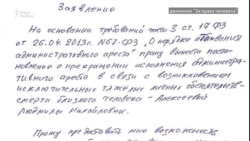 движение "За права человека"
Заявление
На основании требований части 3 ст. 17 ФЗ
от 26.04.2013г. №67-ФЗ „О порядке отбывания
административного ареста" прошу вынести поста-
новление о прекращении исполнения администра-
тивного ареста в связи с возникновением
исключительных тяжёлых личных обстоятельств
- смерти близкого человека - Алексеевой
Людмилы Михайловны.
Прошу предоставить мне возможность